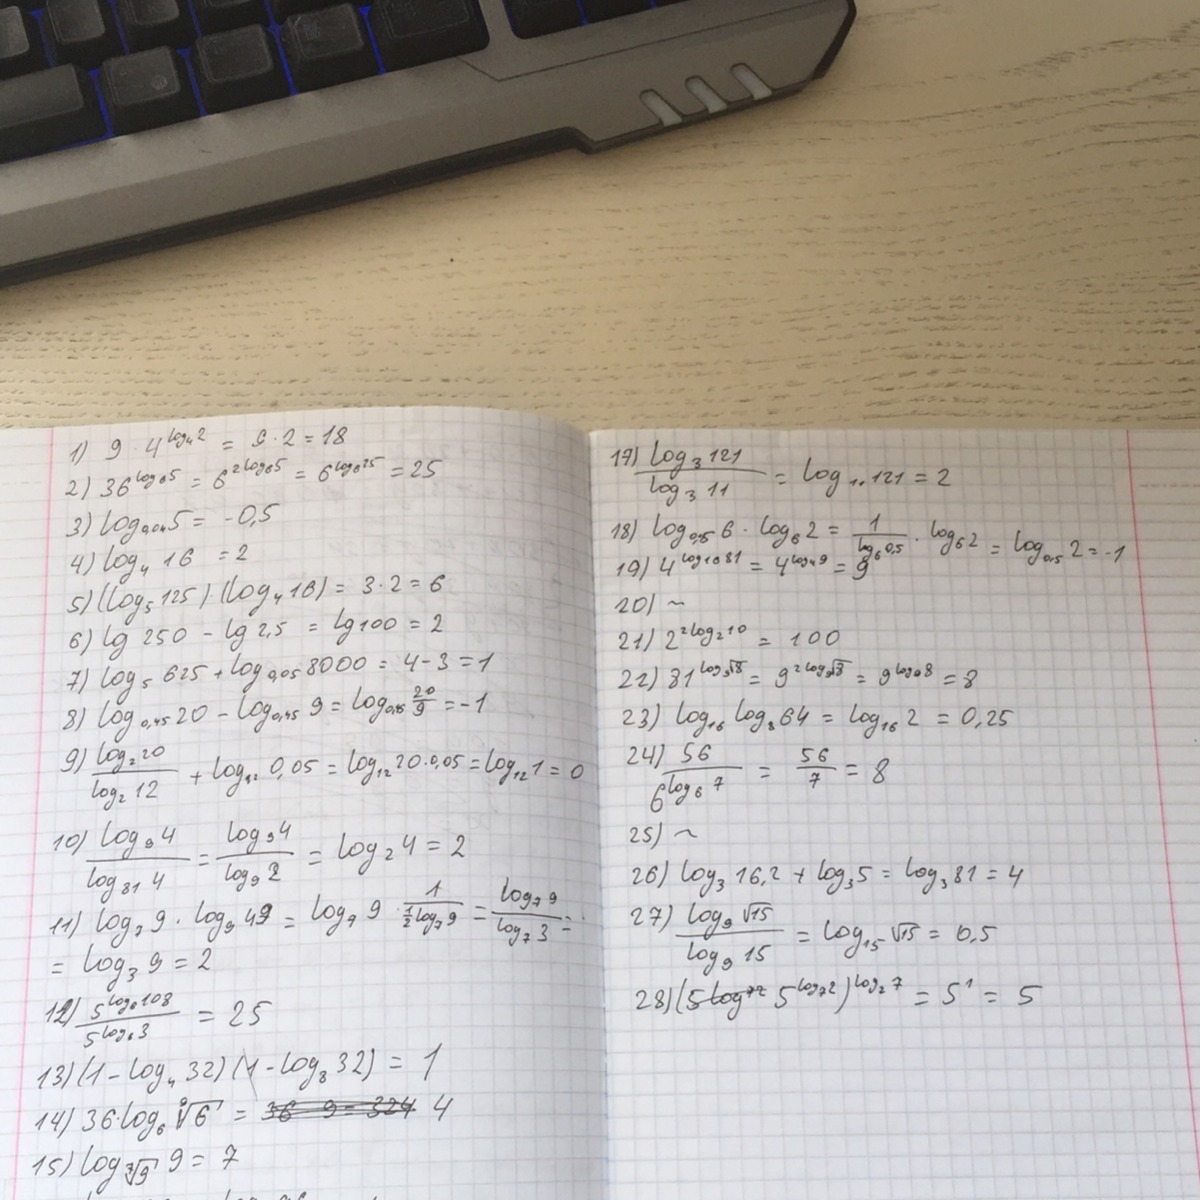 1) 9 · 4^{log_4 2} = 9 · 2 = 18
2) 36^{log_6 5} = 6^{2 log_6 5} = 6^{log_6 25} = 25
3) log_{0,04} 5 = -0,5
4) log_4 16 = 2
5) (log_5 125) · (log_4 16) = 3 · 2 = 6
6) lg 250 - lg 2,5 = lg 100 = 2
7) log_5 625 + log_{0,05} 8000 = 4 - 3 = 1
8) log_{0,45} 20 - log_{0,45} 9 = log_{0,45} 20/9 = -1
9) log_2 20 / log_2 12 + log_{12} 0,05 = log_{12} 20 · 0,05 = log_{12} 1 = 0
10) log_9 4 / log_{81} 4 = log_9 4 / log_9 2 = log_2 4 = 2
11) log_7 9 · log_9 49 = log_7 9 · 1 / (1/2 log_7 9) = log_7 9 / log_7 3 =
= log_3 9 = 2
12) 5^{log_6 108} / 5^{log_6 3} = 25
13) (1 - log_4 32) (1 - log_8 32) = 1
14) 36 · log_6 ⁹√6 = 36 · 9 = 324 4
15) log_{⁷√9} 9 = 7
17) log_3 121 / log_3 11 = log_{11} 121 = 2
18) log_{0,5} 6 · log_6 2 = 1 / log_6 0,5 · log_6 2 = log_{0,5} 2 = -1
19) 4^{log_{16} 81} = 4^{log_4 9} = 9
20) ~
21) 2^{2 log_2 10} = 100
22) 81^{log_9 √8} = 9^{2 log_9 √8} = 9^{log_9 8} = 8
23) log_{16} log_8 64 = log_{16} 2 = 0,25
24) 56 / 6^{log_6 7} = 56 / 7 = 8
25) ~
26) log_3 16,2 + log_3 5 = log_3 81 = 4
27) log_9 √15 / log_9 15 = log_{15} √15 = 0,5
28) (5 log 5^{log_7 2})^{log_2 7} = 5^1 = 5